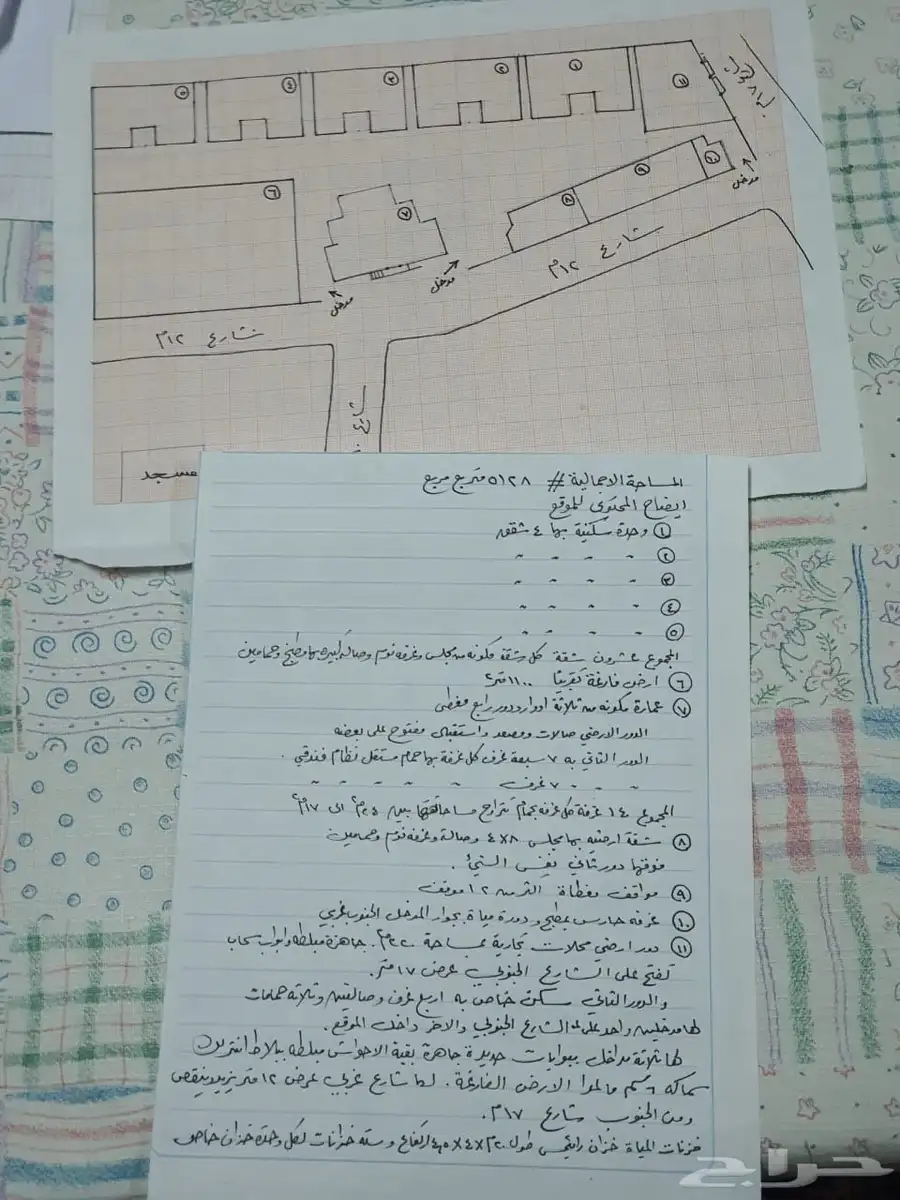 ١
٢
٣
٤
٥
١١
٦
٧
٨
٩
١٠
مدخل
مدخل
مدخل
شارع ١٢م
شارع ١٢م
شارع
مسجد
المساحة الاجمالية # ٥١٢٨ متر مربع
ايضاح المحتوى للموقع
١ وحدة سكنية بها ٤ شقق
٢ " " " "
٣ " " " "
٤ " " " "
٥ " " " "
المجموع عشرون شقة كل شقة مكونه من مجلس وغرفه نوم وصاله كبيره بها مطبخ وحمامين
٦ ارض فارغة تقريبًا ١١٠٠ متر٢
٧ عمارة مكونه من ثلاثة ادوار ودور رابع مغطى
الدور الارضي صالات ومصعد واستقبال مفتوح على بعضه
الدور الثاني به ٧ سبعة غرف كل غرفة بها حمام مستقل نظام فندقي .
" " " ٧ غرف " " " " "
المجموع ١٤ غرفة كل غرفه بحمام تتراوح مساحاتها بين ٢٤م٢ الى ١٧م٢
٨ شقة ارضيه بها مجلس ٨×٤ وصالة وغرفه نوم وحمامين
فوقها دور ثاني نفس الشيئ .
٩ مواقف مغطاة اكثر من ١٢ موقف
١٠ غرفه حارس بمطبخ ودورة مياة بجوار المدخل الجنوب غربي
١١ دور ارضي محلات تجارية بمساحة ٢٢٠م٢. جاهزة مبلطه وابواب سحاب
تفتح على الشارع الجنوبي عرض ١٧ متر.
والدور الثاني سكن خاص به اربع غرف وصالتين وثلاثه حمامات
لها مدخلين واحد على الشارع الجنوبي والاخر داخل الموقع.
لها ثلاثة مداخل ببوابات حديدة جاهزة بقية الاحواش مبلطه ببلاط انترلك
سماكه ٦سم ما عدا الارض الفارغة. لها شارع غربي عرض ١٢ متر يزيد ينقص
ومن الجنوب شارع ١٧م.
خزنات المياة خزان رئيسي طول ٢٠×٤× ارتفاع وسته خزانات لكل وحدة خزان خاص
حراج